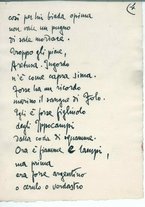 4
così per lui biada opima
non vale un pugno
di sale mortale.
Troppo gli piace,
Aretusa. Ingordo
n'è come capra sima.
Forse ha un ricordo
marino il sangue di Folo.
Egli è forse figliuolo
degli Ippocampi
dalla coda di squamme.
Ora è fiamme e lampi,
ma prima
era forse argentino
o cerulo o verdastro